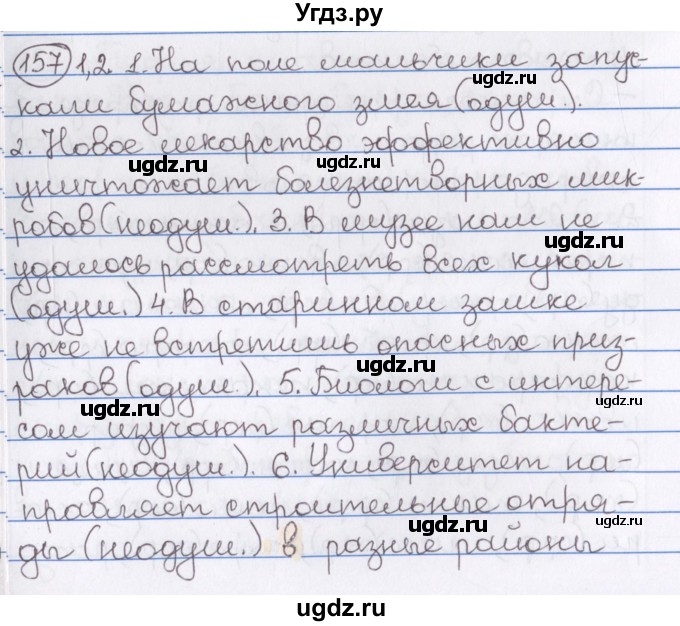 Угдз.ру
157 1,2 1. На поле мальчики запус-
кали бумажного змея (одуш.).
ugdz.ru
2. Новое лекарство эффективно
ugdz.ru ugdz.ru
уничтожает болезнетворных мик-
робов (неодуш.). 3. В музее нам не
ugdz.ru
удалось рассмотреть всех кукол
ugdz.ru
(одуш.) 4. В старинном замке
уже не встретишь опасных приз-
ugdz.ru
раков (одуш.). 5. Биологи с интере-
ugdz.ru ugdz.ru
сом изучают различных бакте-
рий (неодуш.). 6. Университет на-
ugdz.ru
правляет строительные отря-
ugdz.ru
ды (неодуш.) в разные районы
ugdz.ru